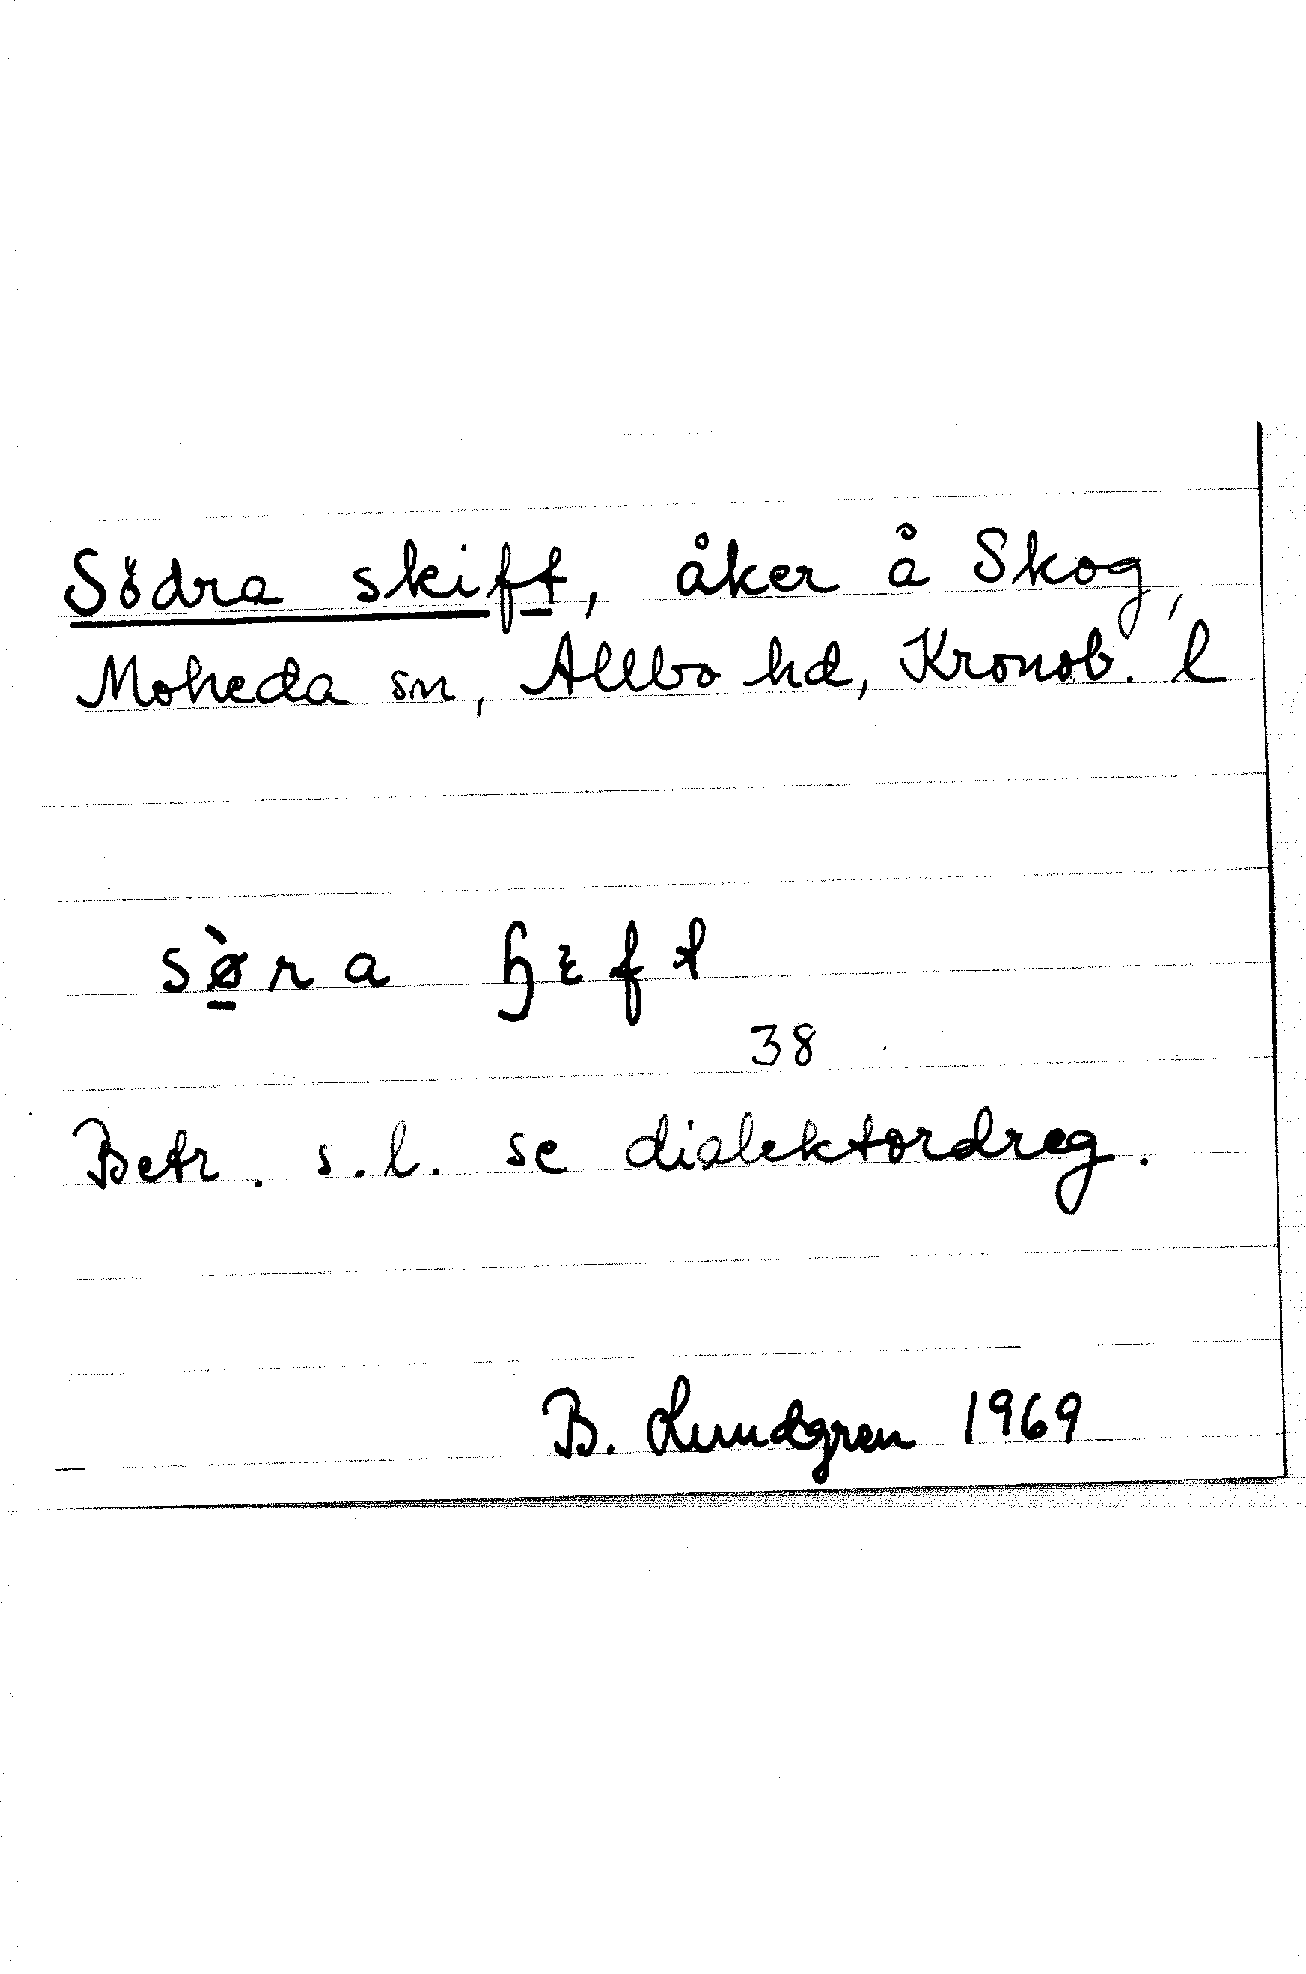 Södra skift, åker å Skog,
Moheda sn, Allbo hd, Kronob. l
sø̱̀ra ɧɪft
38
Betr. s.l. se dialektordreg.
B. Lundgren 1969